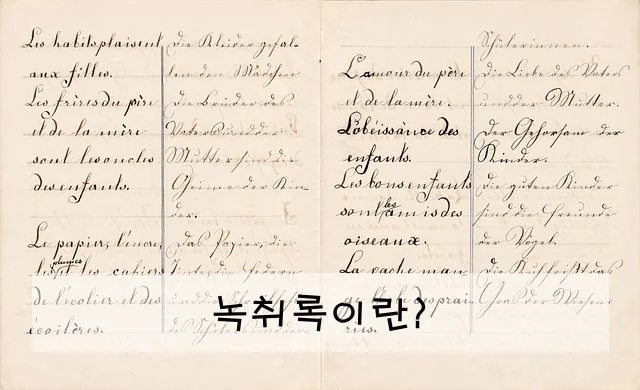 Les habits plaisent
aux filles.
Les frères du père
et de la mère
sont les oncles
des enfants.
Le papier, l'encre,
plumes
les et les cahiers
de l'écolier et des
écolières.
Die Kleider gefal-
len den Mädchen
Die Brüder des
Vaters und der
Mutter sind die
der Kin-
der.
Das Papier, die
Tinte, die Federn
L'amour du père
et de la mère.
L'obéissance des
enfants.
Les bons enfants
les
sont amis des
oiseaux.
La vache man-
des prai-
ries.
Schülerinnen.
Die Liebe des Vaters
und der Mutter.
Der Gehorsam der
Kinder.
Die guten Kinder
sind die Freunde
der Vögel.
Die Kuh frißt das
Gras der Wiesen.
녹취록이란?